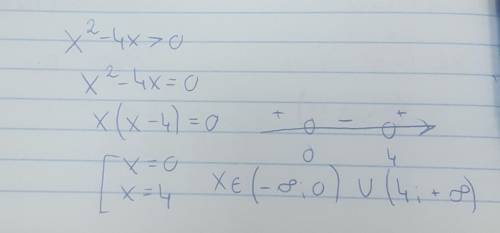 x² - 4x > 0
x² - 4x = 0
x(x - 4) = 0
+ - +
0 4
[ x = 0
x = 4
x ∈ (-∞; 0) ∪ (4; +∞)